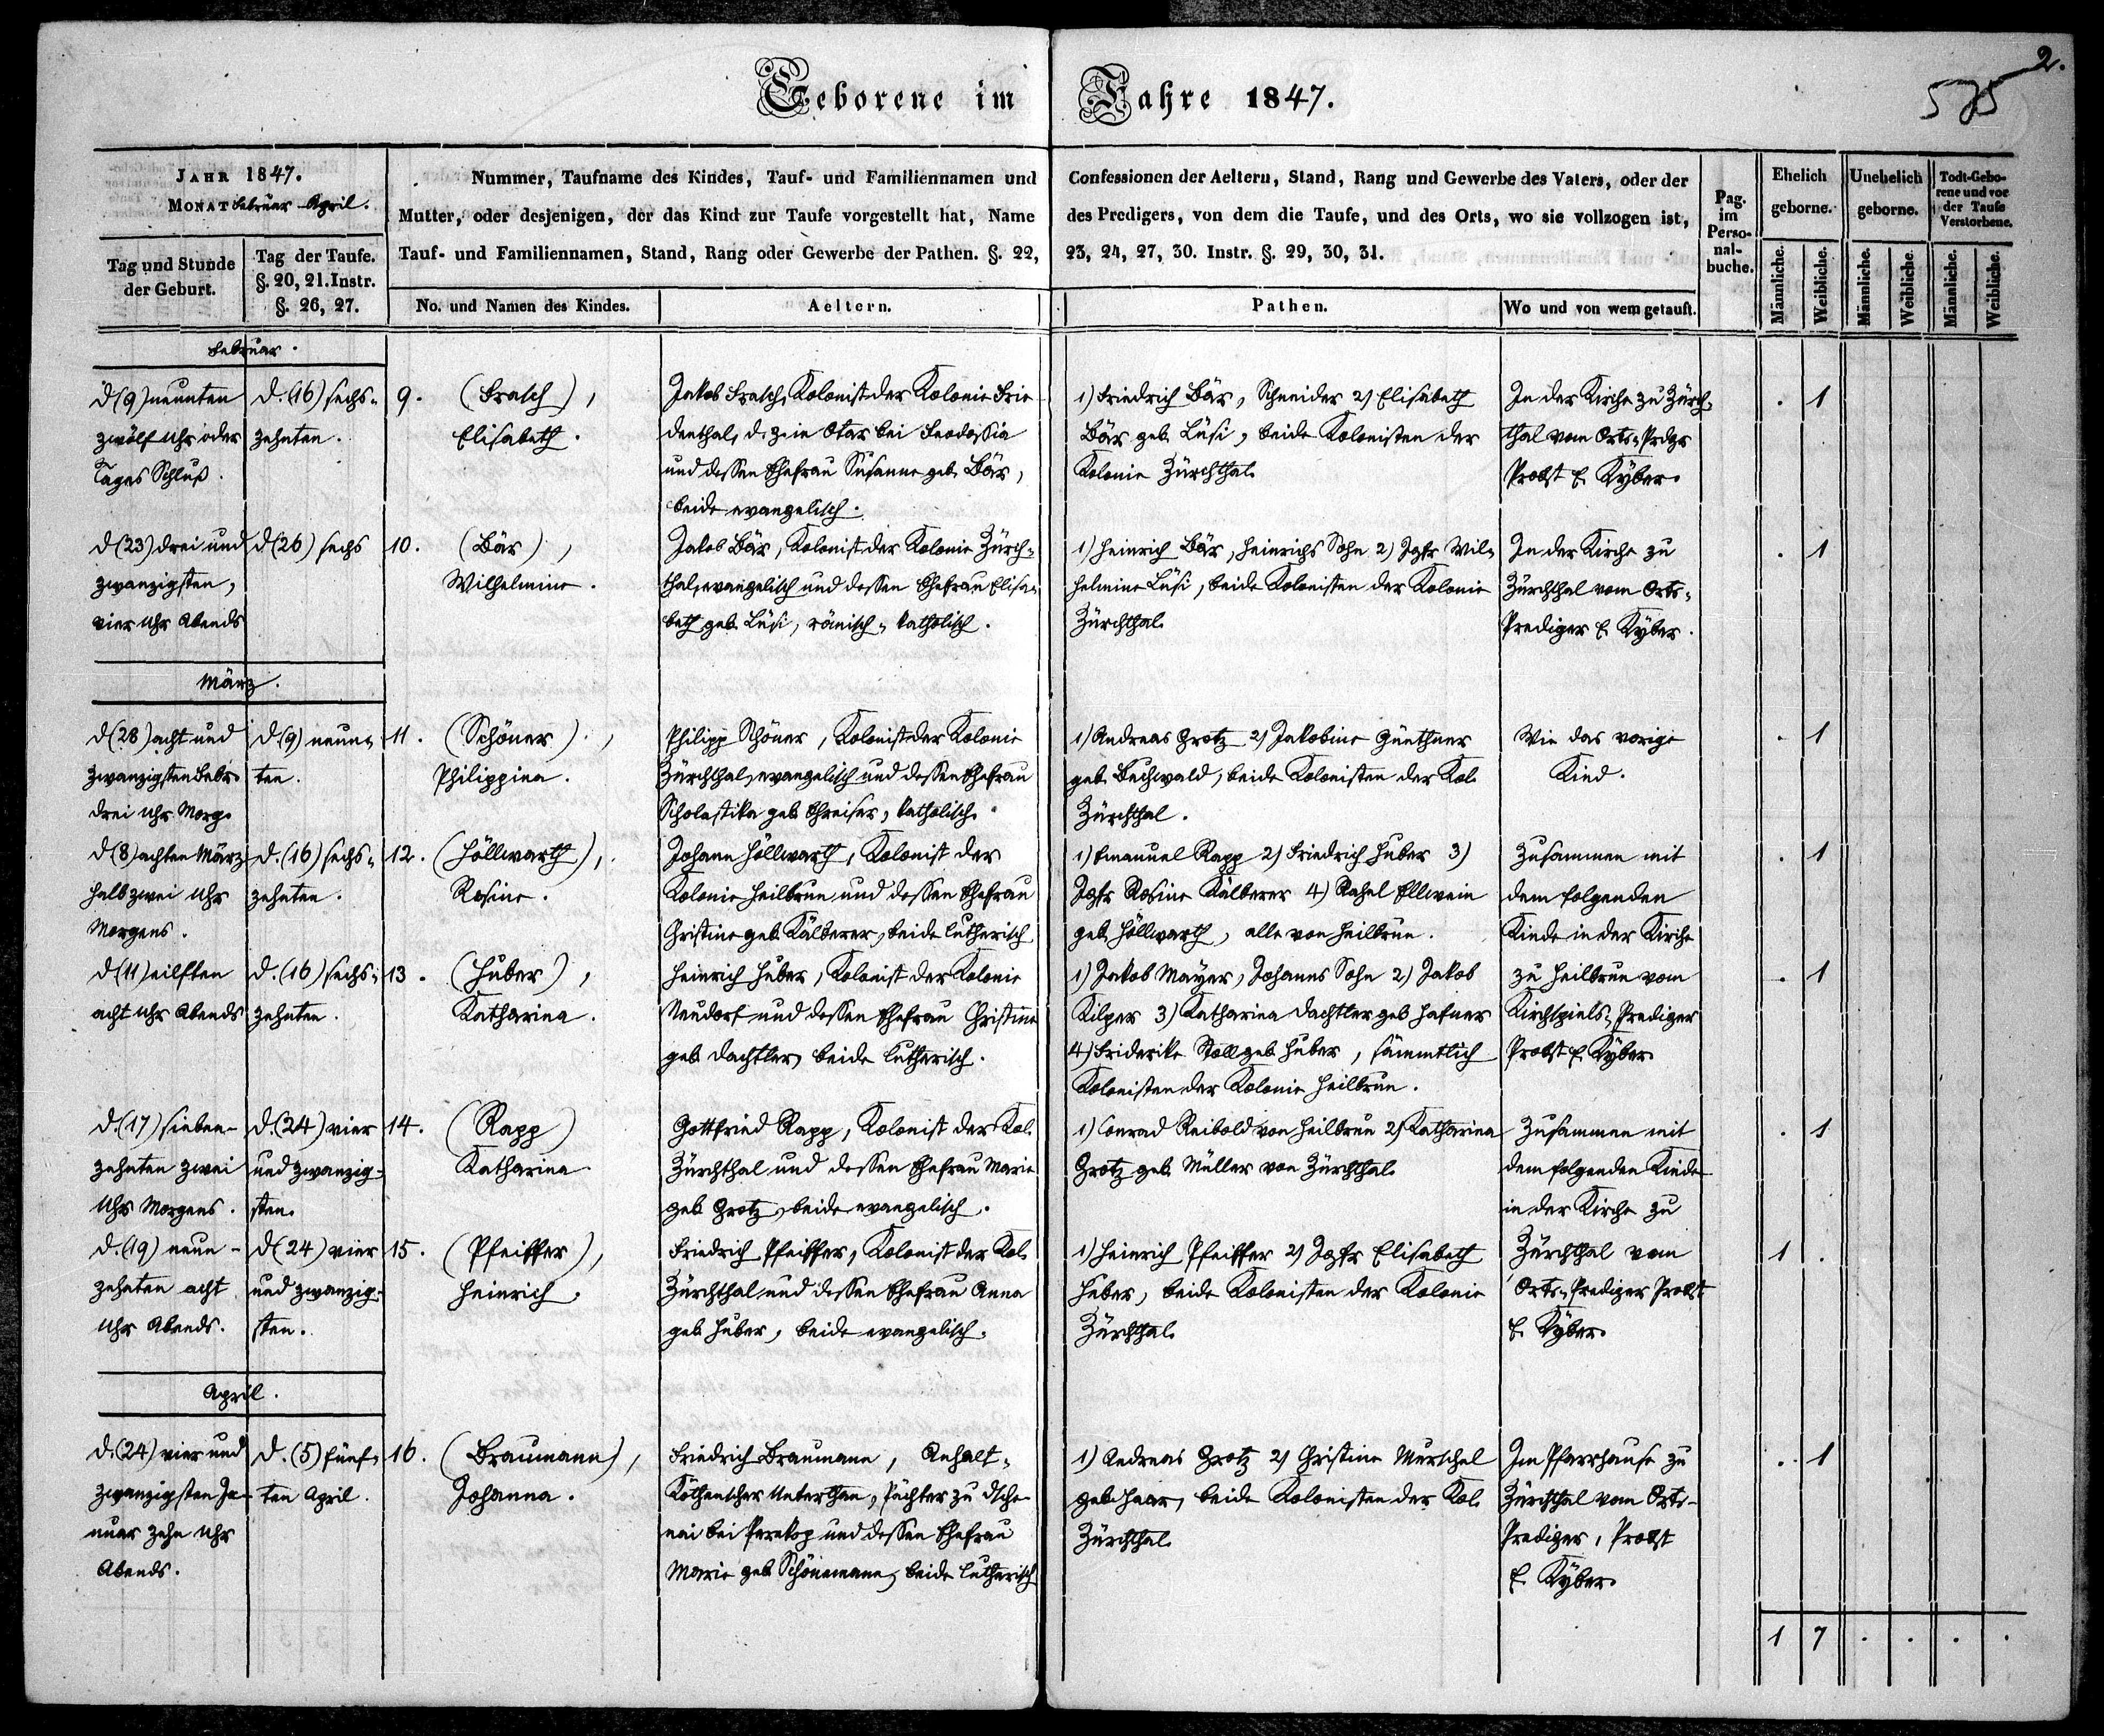 2.
575
Geborene im Jahre 1847.
JAHR 1847.
MONAT Februar April.
Tag und Stunde der Geburt.
Tag der Taufe. §. 20, 21. Instr. §. 26, 27.
Nummer, Taufname des Kindes, Tauf- und Familiennamen und Confessionen der Aeltern, Stand, Rang und Gewerbe des Vaters, oder der
Mutter, oder desjenigen, der das Kind zur Taufe vorgestellt hat, Name des Predigers, von dem die Taufe, und des Orts, wo sie vollzogen ist,
Tauf- und Familiennamen, Stand, Rang oder Gewerbe der Pathen. §. 22, 23, 24, 27, 30. Instr. §. 29, 30, 31.
No. und Namen des Kindes.
Aeltern.
Pathen.
Wo und von wem getauft.
Pag. im Perso- nal- buche.
Ehelich geborne.
Unehelich geborne.
Todt-Gebo- rene und vor der Taufe Verstorbene.
Männliche. Weibliche. Männliche. Weibliche. Männliche. Weibliche.
Februar.
d (9) neunten
zwölf Uhr oder
Tages Schluß.
d. (16) sechs-
zehnten.
9. (Frasch),
Elisabeth.
Jakob Frasch, Kolonist der Kolonie Frie
denthal, d. z. in Otar bei Feodossia
und dessen Ehefrau Susanne geb. Bär,
beide evangelisch.
1) Friedrich Bär, Schneider 2) Elisabeth
Bär geb. Lüsi, beide Kolonisten der
Kolonie Zürchthal.
In der Kirche zu Zürch-
thal vom Orts-Prdgr
Probst E. Kyber.
. 1
d (23) drei und
zwanzigsten,
vier Uhr Abends
d (26) sechs
10. (Bär),
Wilhelmine.
Jakob Bär, Kolonist der Kolonie Zürch-
thal, evangelisch und dessen Ehefrau Elisa-
beth geb. Lüsi, römisch-katholisch.
1) Heinrich Bär, Heinrichs Sohn 2) Jgfr Wil-
helmine Lüsi, beide Kolonisten der Kolonie
Zürchthal.
In der Kirche zu
Zürchthal vom Orts-
Prediger E. Kyber.
. 1
März.
d (28) acht und
zwanzigsten Febr.
drei Uhr Morg.
d. (9) neun-
ten.
11. (Schöner),
Philippina.
Philipp Schöner, Kolonist der Kolonie
Zürchthal, evangelisch und dessen Ehefrau
Scholastika geb. Ehreiser, katholisch.
1) Andreas Grotz 2) Jakobine Günthner
geb. Buchwald, beide Kolonisten der Kol.
Zürchthal.
Wie das vorige
Kind.
. 1
d (8) achten März
halb zwei Uhr
Morgens.
d. (16) sechs-
zehnten.
12. (Höllwarth),
Rosine.
Johann Höllwarth, Kolonist der
Kolonie Heilbrun und dessen Ehefrau
Christine geb. Kälberer, beide lutherisch
1) Emanuel Rapp 2) Friedrich Huber 3)
Jgfr Rosine Kälberer 4) Rahel Ellwein
geb. Höllwarth, alle von Heilbrun.
Zusammen mit
dem folgenden
Kinde in der Kirche
. 1
d (11) eilften
acht Uhr Abends
d. (16) sechs-
zehnten.
13. (Huber),
Katharina.
Heinrich Huber, Kolonist der Kolonie
Neudorf und dessen Ehefrau Christine
geb. Dachtler, beide lutherisch.
1) Jakob Mayer, Johanns Sohn 2) Jakob
Kilper 3) Katharina Dachtler geb. Hafner
4) Friderike Stoll geb. Huber, sämmtlich
Kolonisten der Kolonie Heilbrun.
zu Heilbrun vom
Kirchspiels-Prediger
Probst E. Kyber.
. 1
d. (17) sieben-
zehnten zwei
Uhr Morgens.
d (24) vier
und zwanzig-
sten.
14. (Rapp)
Katharina
Gottfried Rapp, Kolonist der Kol.
Zürchthal und dessen Ehefrau Marie
geb. Grotz, beide evangelisch.
1) Conrad Reibold von Heilbrun 2) Katharina
Grotz geb. Müller von Zürchthal.
Zusammen mit
dem folgenden Kinde
in der Kirche zu
. 1
d. (19) neun-
zehnten acht
Uhr Abends.
d (24) vier
und zwanzig-
sten.
15. (Pfeiffer),
Heinrich.
Friedrich Pfeiffer, Kolonist der Kol.
Zürchthal und dessen Ehefrau Anna
geb. Huber, beide evangelisch.
1) Heinrich Pfeiffer 2) Jgfr Elisabeth
Huber, beide Kolonisten der Kolonie
Zürchthal.
Zürchthal vom
Orts-Prediger Probst
E. Kyber.
1 .
April.
d. (24) vier und
zwanzigsten Ja-
nuar zehn Uhr
Abends.
d. (5) fünf-
ten April.
16. (Braumann),
Johanna.
Friedrich Braumann, Anhalt-
Köthenscher Unterthan, Pächter zu Dsche
nai bei Perekop und dessen Ehefrau
Marie geb. Schönemann, beide lutherisch
1) Andreas Grotz 2) Christine Murschel
geb. Haar, beide Kolonisten der Kol.
Zürchthal.
Im Pfarrhause zu
Zürchthal vom Orts-
Prediger, Probst
E. Kyber.
. 1
1 7 . . . .